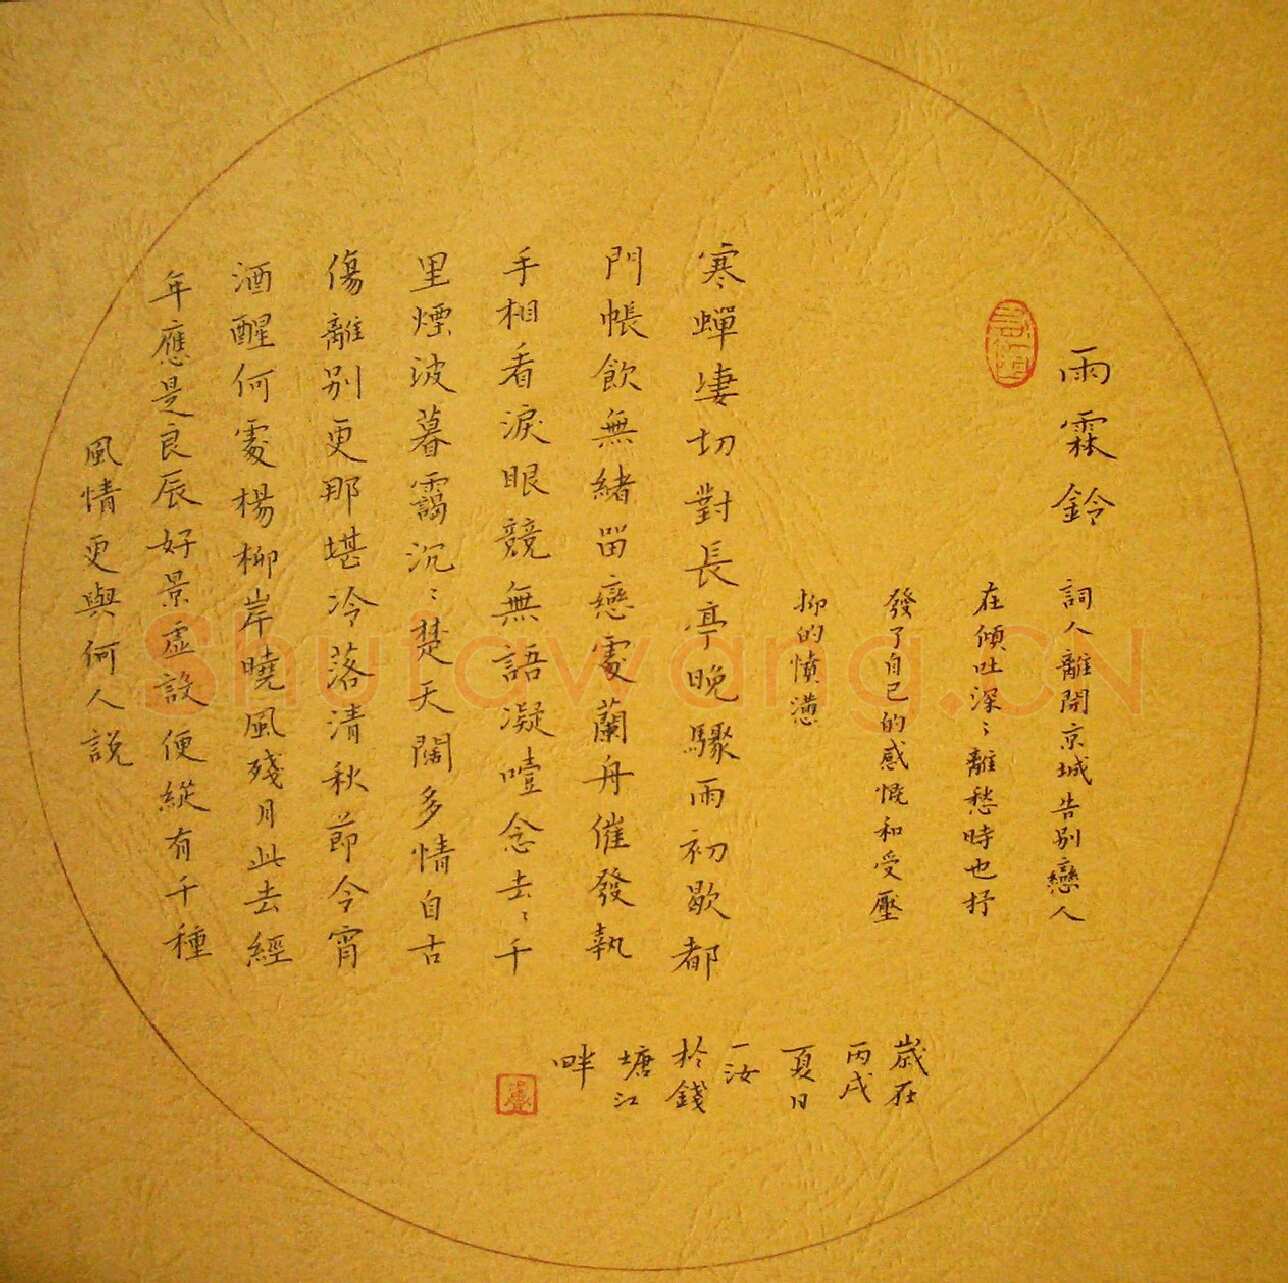 雨霖鈴
詞人離開京城告別戀人
在傾吐深〻離愁時也抒
發了自己的感慨和受壓
抑的憤懣
寒蟬凄切對長亭晚驟雨初歇都
門帳飲無緒留戀處蘭舟催發執
手相看淚眼競無語凝噎念去〻千
里煙波暮靄沉〻楚天闊多情自古
傷離別更那堪冷落清秋節今宵
酒醒何處楊柳岸曉風殘月此去經
年應是良辰好景虛設便縱有千種
風情更與何人說
歲在
丙戌
夏日
一汝
於錢
塘江
畔
Shufawang.CN